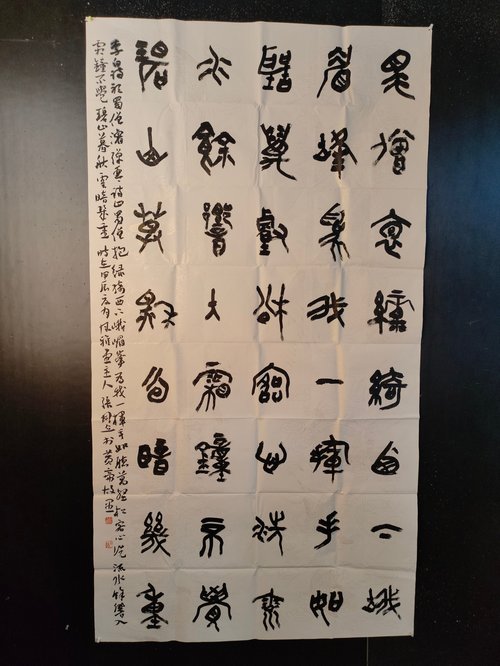 蜀僧抱綠綺西下峨
眉峰為我一揮手如
聽萬壑松客心洗流
水餘響入霜鐘不覺
碧山暮秋雲暗幾重
李白詩聽蜀僧濬彈琴詩曰蜀僧抱綠綺西下峨嵋峯為我一揮手如聽萬壑松客心洗流水餘響入
霜鐘不覺碧山暮秋雲暗幾重時在甲辰夏月風雅堂主人張